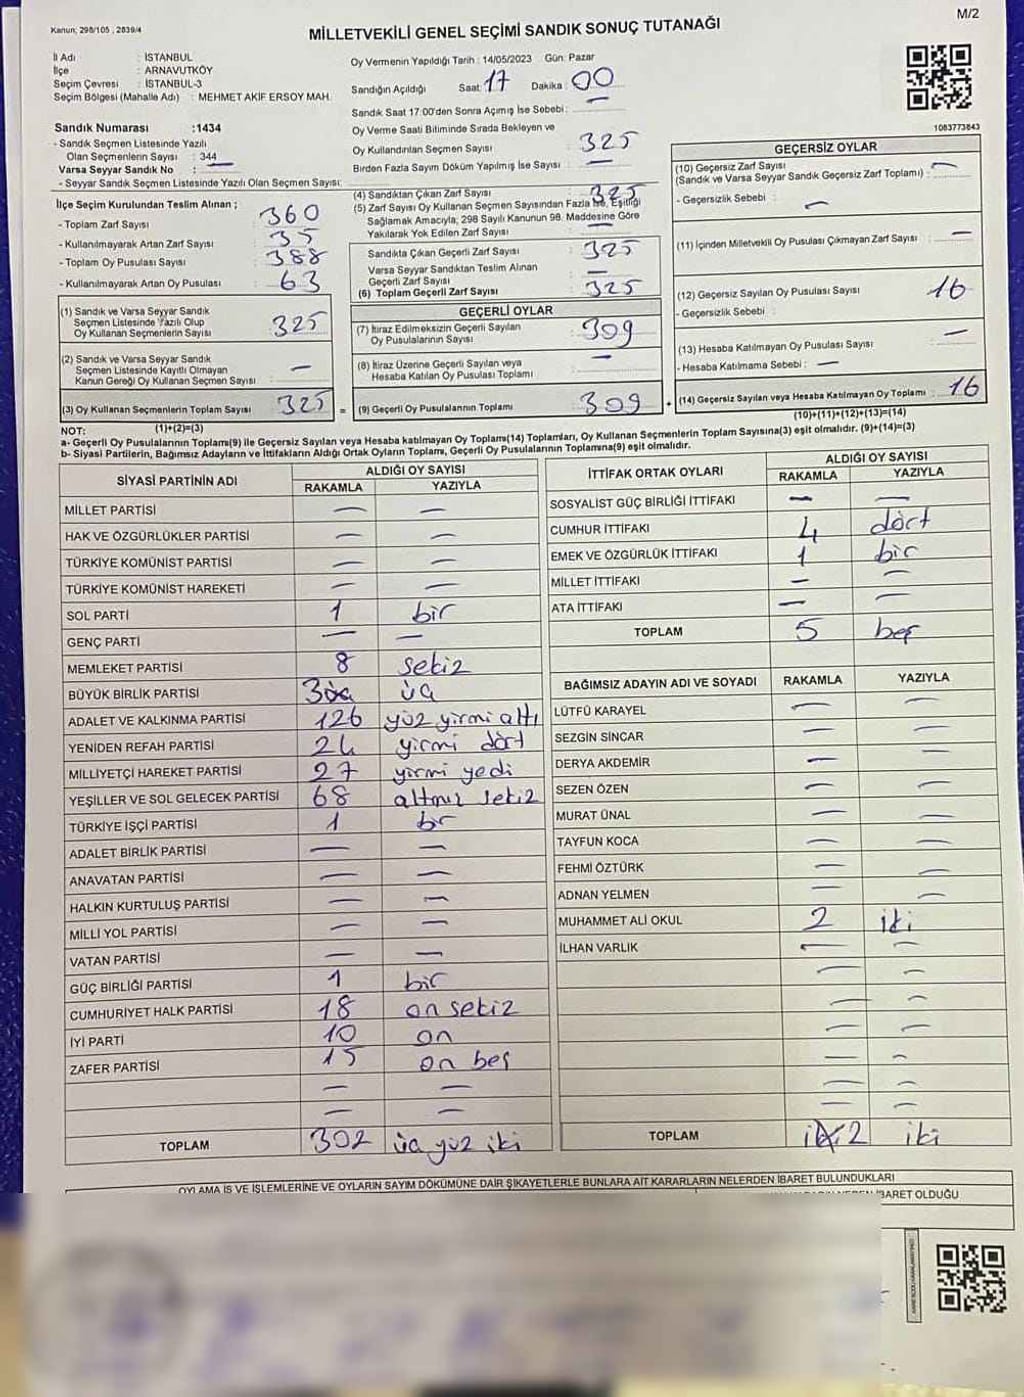 M/2
Kanun; 298/105 , 2839/4
MİLLETVEKİLİ GENEL SEÇİMİ SANDIK SONUÇ TUTANAĞI
İl Adı : İSTANBUL
İlçe : ARNAVUTKÖY
Seçim Çevresi : İSTANBUL-3
Seçim Bölgesi (Mahalle Adı) : MEHMET AKİF ERSOY MAH.
Sandık Numarası :1434
- Sandık Seçmen Listesinde Yazılı
Olan Seçmenlerin Sayısı : 344
Varsa Seyyar Sandık No :
- Seyyar Sandık Seçmen Listesinde Yazılı Olan Seçmen Sayısı:
Oy Vermenin Yapıldığı Tarih : 14/05/2023 Gün: Pazar
Sandığın Açıldığı Saat: 17 Dakika : 00
Sandık Saat 17.00'den Sonra Açımış İse Sebebi : —
Oy Verme Saati Bitiminde Sırada Bekleyen ve
Oy Kullandırılan Seçmen Sayısı : 325
Birden Fazla Sayım Döküm Yapılmış İse Sayısı : —
1083773843
İlçe Seçim Kurulundan Teslim Alınan ;
- Toplam Zarf Sayısı : 360
- Kullanılmayarak Artan Zarf Sayısı : 35
- Toplam Oy Pusulası Sayısı : 388
- Kullanılmayarak Artan Oy Pusulası : 63
(1) Sandık ve Varsa Seyyar Sandık
Seçmen Listesinde Yazılı Olup
Oy Kullanan Seçmenlerin Sayısı : 325
(2) Sandık ve Varsa Seyyar Sandık
Seçmen Listesinde Kayıtlı Olmayan
Kanun Gereği Oy Kullanan Seçmen Sayısı : —
(3) Oy Kullanan Seçmenlerin Toplam Sayısı : 325 =
(1)+(2)=(3)
(4) Sandıktan Çıkan Zarf Sayısı : 325
(5) Zarf Sayısı Oy Kullanan Seçmen Sayısından Fazla İse, Eşitliği
Sağlamak Amacıyla; 298 Sayılı Kanunun 98. Maddesine Göre
Yakılarak Yok Edilen Zarf Sayısı : —
Sandıkta Çıkan Geçerli Zarf Sayısı : 325
Varsa Seyyar Sandıktan Teslim Alınan
Geçerli Zarf Sayısı : —
(6) Toplam Geçerli Zarf Sayısı : 325
GEÇERLİ OYLAR
(7) İtiraz Edilmeksizin Geçerli Sayılan
Oy Pusulalarının Sayısı : 309
(8) İtiraz Üzerine Geçerli Sayılan veya
Hesaba Katılan Oy Pusulası Toplamı : —
(9) Geçerli Oy Pusulalarının Toplamı : 309 +
GEÇERSİZ OYLAR
(10) Geçersiz Zarf Sayısı
(Sandık ve Varsa Seyyar Sandık Geçersiz Zarf Toplamı) : —
- Geçersizlik Sebebi : —
(11) İçinden Milletvekili Oy Pusulası Çıkmayan Zarf Sayısı : —
(12) Geçersiz Sayılan Oy Pusulası Sayısı : 16
- Geçersizlik Sebebi :
(13) Hesaba Katılmayan Oy Pusulası Sayısı : —
- Hesaba Katılmama Sebebi : —
(14) Geçersiz Sayılan veya Hesaba Katılmayan Oy Toplamı : 16
(10)+(11)+(12)+(13)=(14)
NOT:
a- Geçerli Oy Pusulalarının Toplamı(9) ile Geçersiz Sayılan veya Hesaba katılmayan Oy Toplamı(14) Toplamları, Oy Kullanan Seçmenlerin Toplam Sayısına(3) eşit olmalıdır. (9)+(14)=(3)
b- Siyasi Partilerin, Bağımsız Adayların ve İttifakların Aldığı Ortak Oyların Toplamı, Geçerli Oy Pusulalarının Toplamına(9) eşit olmalıdır.
SİYASİ PARTİNİN ADI ALDIĞI OY SAYISI
RAKAMLA YAZIYLA
MİLLET PARTİSİ — —
HAK VE ÖZGÜRLÜKLER PARTİSİ — —
TÜRKİYE KOMÜNİST PARTİSİ — —
TÜRKİYE KOMÜNİST HAREKETİ — —
SOL PARTİ 1 bir
GENÇ PARTİ — —
MEMLEKET PARTİSİ 8 sekiz
BÜYÜK BİRLİK PARTİSİ 3 üç
ADALET VE KALKINMA PARTİSİ 126 yüz yirmi altı
YENİDEN REFAH PARTİSİ 24 yirmi dört
MİLLİYETÇİ HAREKET PARTİSİ 27 yirmi yedi
YEŞİLLER VE SOL GELECEK PARTİSİ 68 altmış sekiz
TÜRKİYE İŞÇİ PARTİSİ 1 bir
ADALET BİRLİK PARTİSİ — —
ANAVATAN PARTİSİ — —
HALKIN KURTULUŞ PARTİSİ — —
MİLLİ YOL PARTİSİ — —
VATAN PARTİSİ — —
GÜÇ BİRLİĞİ PARTİSİ 1 bir
CUMHURİYET HALK PARTİSİ 18 on sekiz
İYİ PARTİ 10 on
ZAFER PARTİSİ 15 on beş
— —
— —
TOPLAM 302 üç yüz iki
İTTİFAK ORTAK OYLARI ALDIĞI OY SAYISI
RAKAMLA YAZIYLA
SOSYALİST GÜÇ BİRLİĞİ İTTİFAKI — —
CUMHUR İTTİFAKI 4 dört
EMEK VE ÖZGÜRLÜK İTTİFAKI 1 bir
MİLLET İTTİFAKI — —
ATA İTTİFAKI — —
TOPLAM 5 beş
BAĞIMSIZ ADAYIN ADI VE SOYADI RAKAMLA YAZIYLA
LÜTFÜ KARAYEL — —
SEZGİN SİNCAR — —
DERYA AKDEMİR — —
SEZEN ÖZEN — —
MURAT ÜNAL — —
TAYFUN KOCA — —
FEHMİ ÖZTÜRK — —
ADNAN YELMEN — —
MUHAMMET ALİ OKUL 2 iki
İLHAN VARLIK — —
— —
— —
— —
— —
— —
— —
TOPLAM 2 iki
OYLAMA İŞ VE İŞLEMLERİNE VE OYLARIN SAYIM DÖKÜMÜNE DAİR ŞİKAYETLERLE BUNLARA AİT KARARLARIN NELERDEN İBARET BULUNDUKLARI
İBARET OLDUĞU